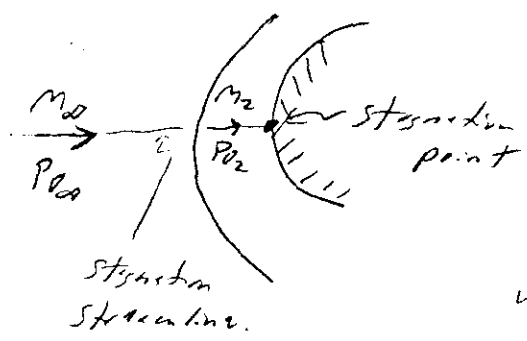 M∞
P0∞
M2
P02
stagnation
point
stagnation
streamline.